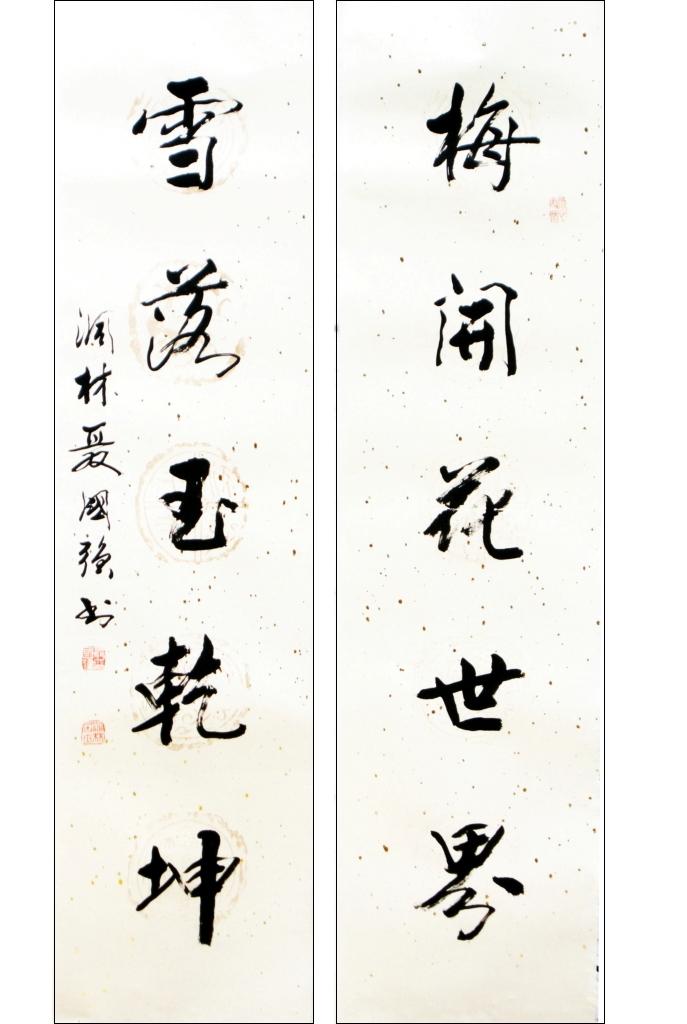 梅開花世界
雪落玉乾坤
润林聂國强书